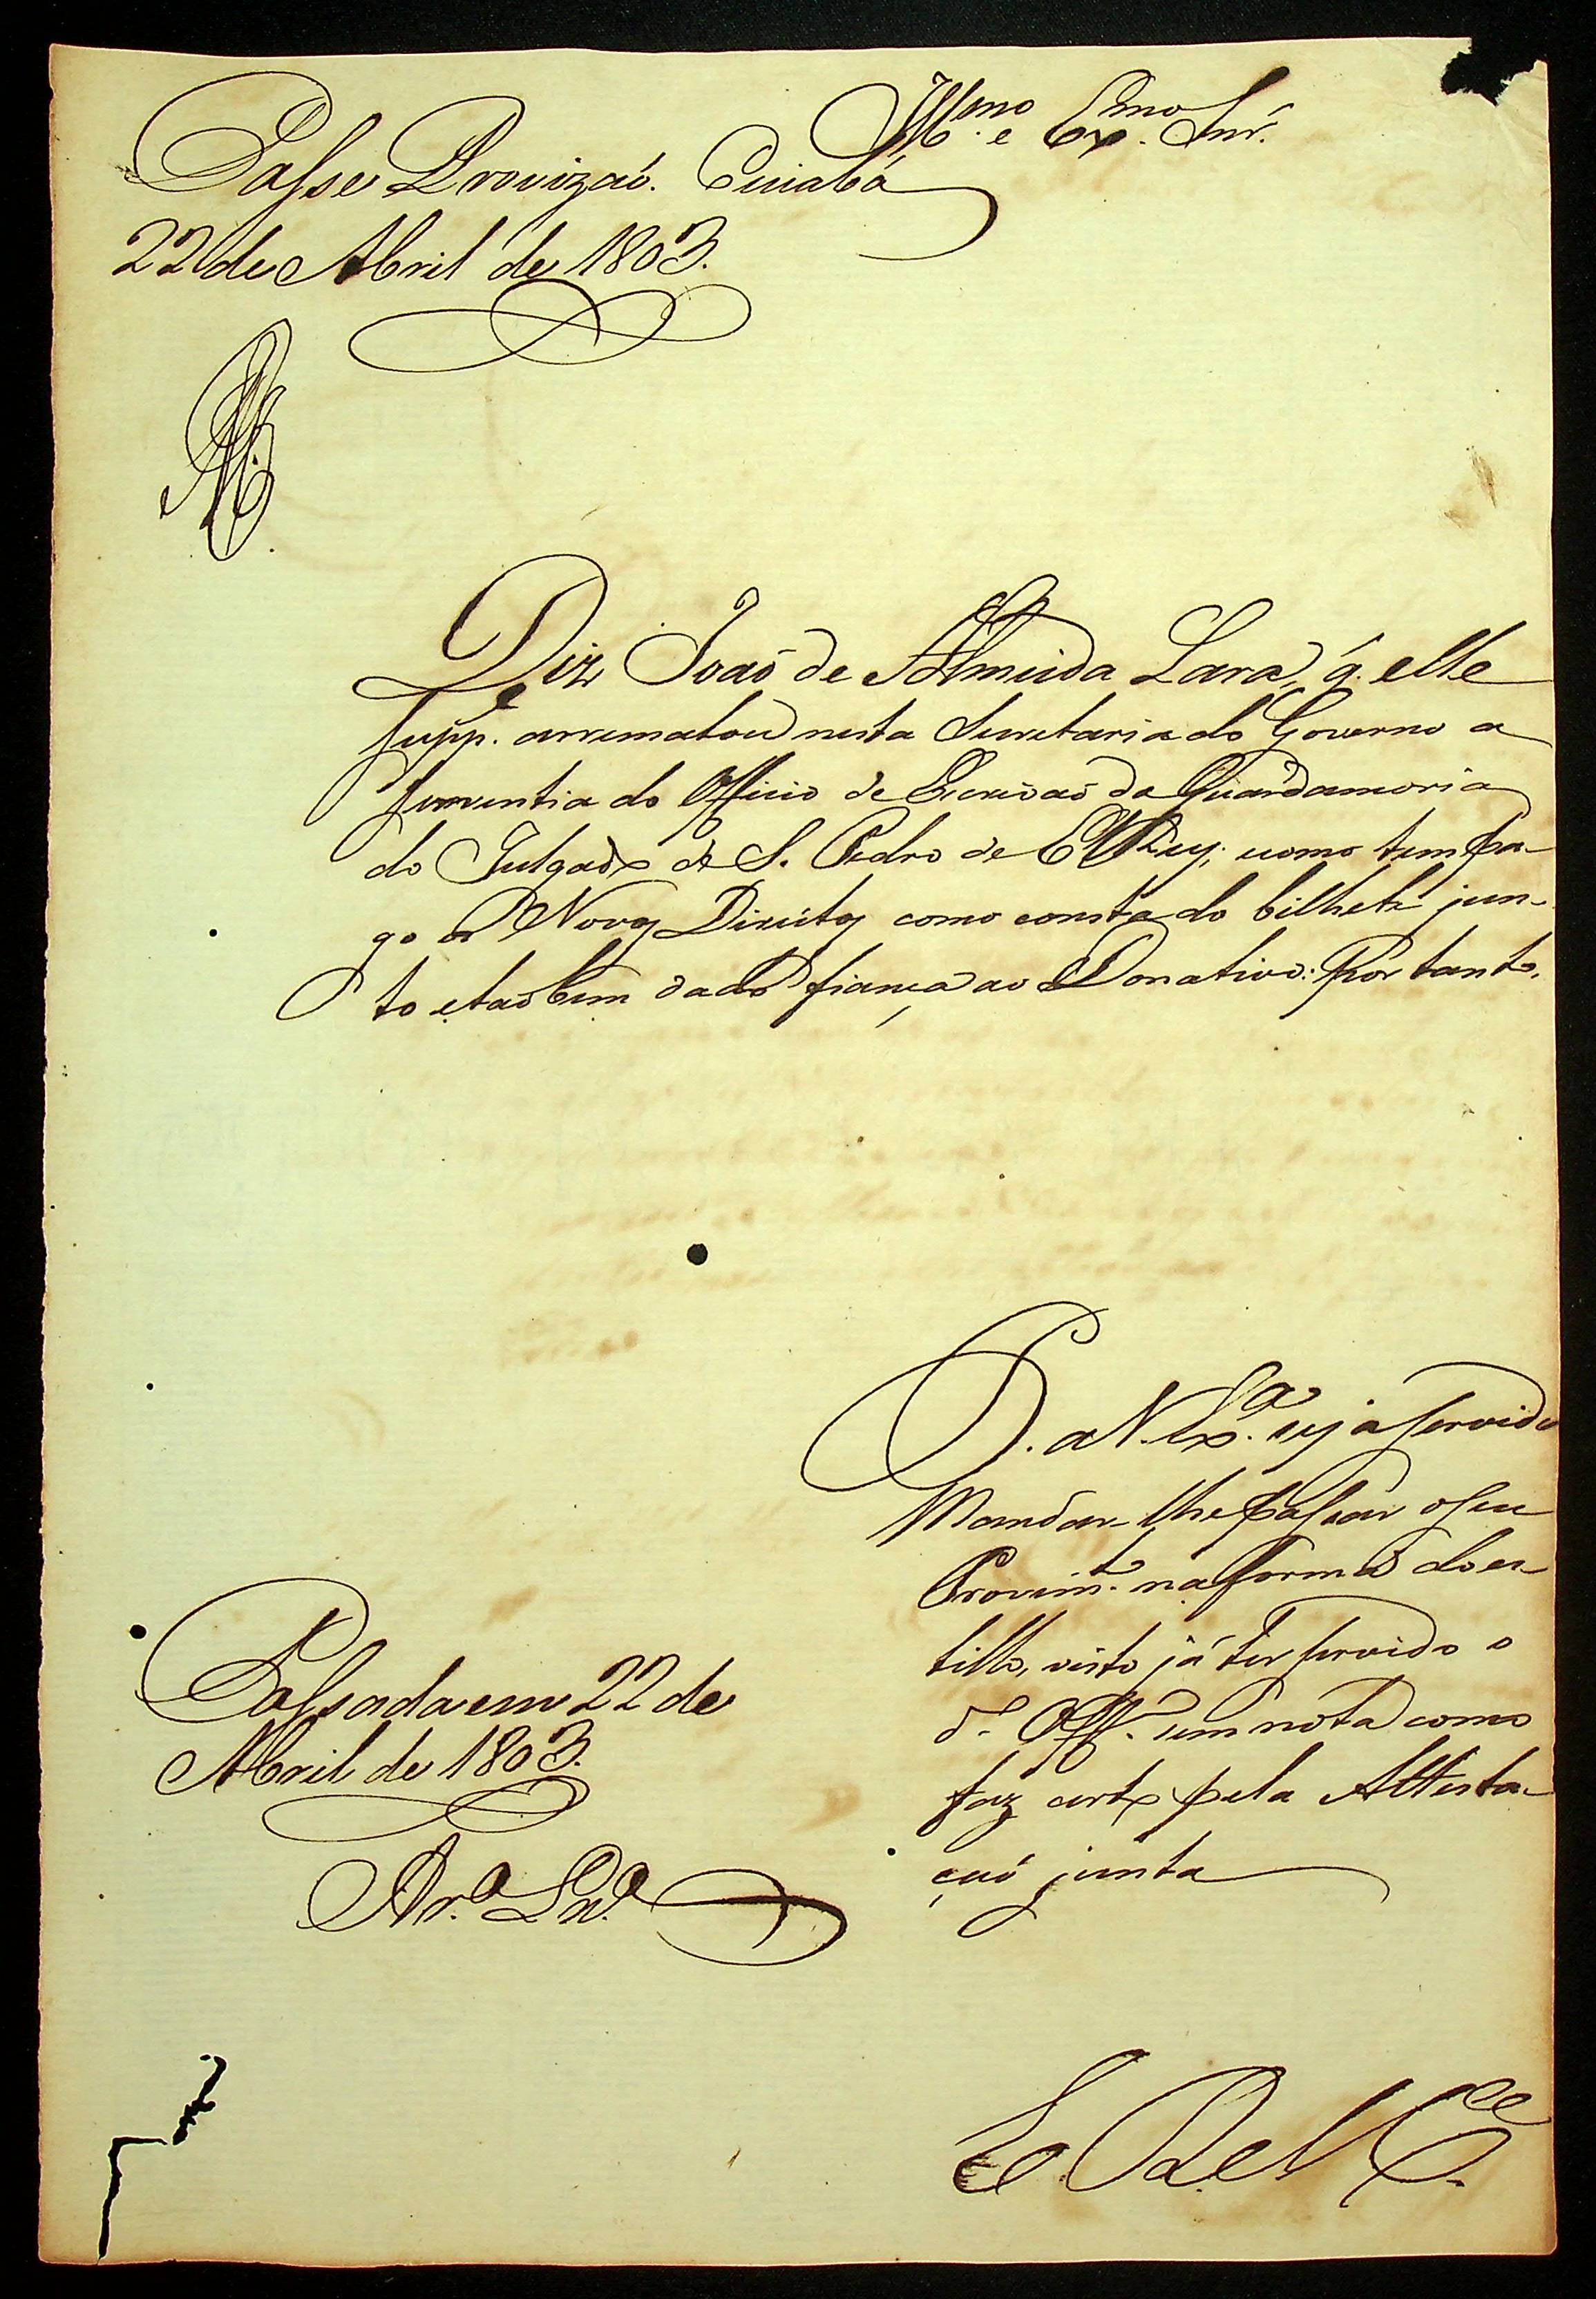 Illmo. e Exmo. Snr.
Passe Provizaõ. Cuiabá
22 de Abril de 1803.
Diz Joaõ de Almeida Lara, q. elle
Supp.e arrematou nesta Secretaria do Governo a
serventia do Officio de Escrivaõ da Guardamoria
do Julgado de S. Pedro de El Rey; como tem pa-
go os Novos Direitos como consta do bilhete jun-
to e taõbem dado fiança ao Donativo: Por tanto.
P. a V. Exa. seja servido
Mandar-lhe passar o seu
Provimto. na forma do es-
tillo, visto já ter servido o
do. Offo. sem nota como
faz certo pela Attesta-
çaõ junta
Passada em 22 de
Abril de 1803.
E. R. Mce.